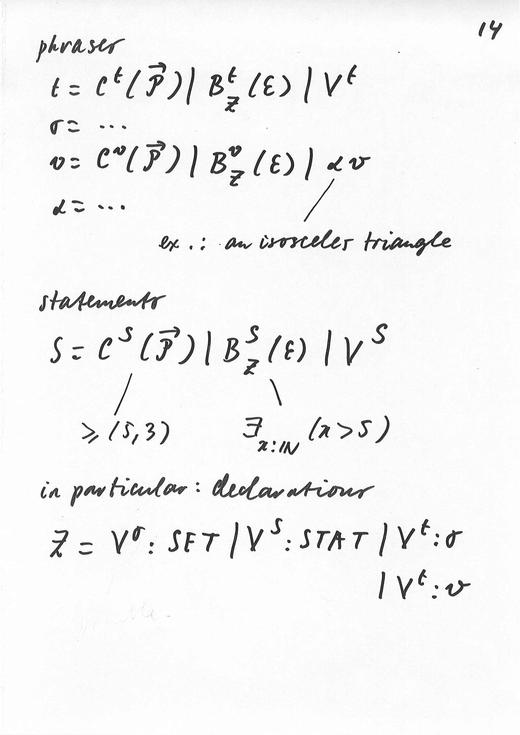 14
phrases
t = C^t(P⃗) | B^t_Z(ℰ) | V^t
σ = ...
ν = C^ν(P⃗) | B^ν_Z(ℰ) | αν
α = ...
ex.: an isosceles triangle
statements
S = C^S(P⃗) | B^S_Z(ℰ) | V^S
≥(5,3) ∃_{x:ℕ}(x>5)
in particular: declarations
Z = V^σ: SET | V^S: STAT | V^t:σ
| V^t:ν